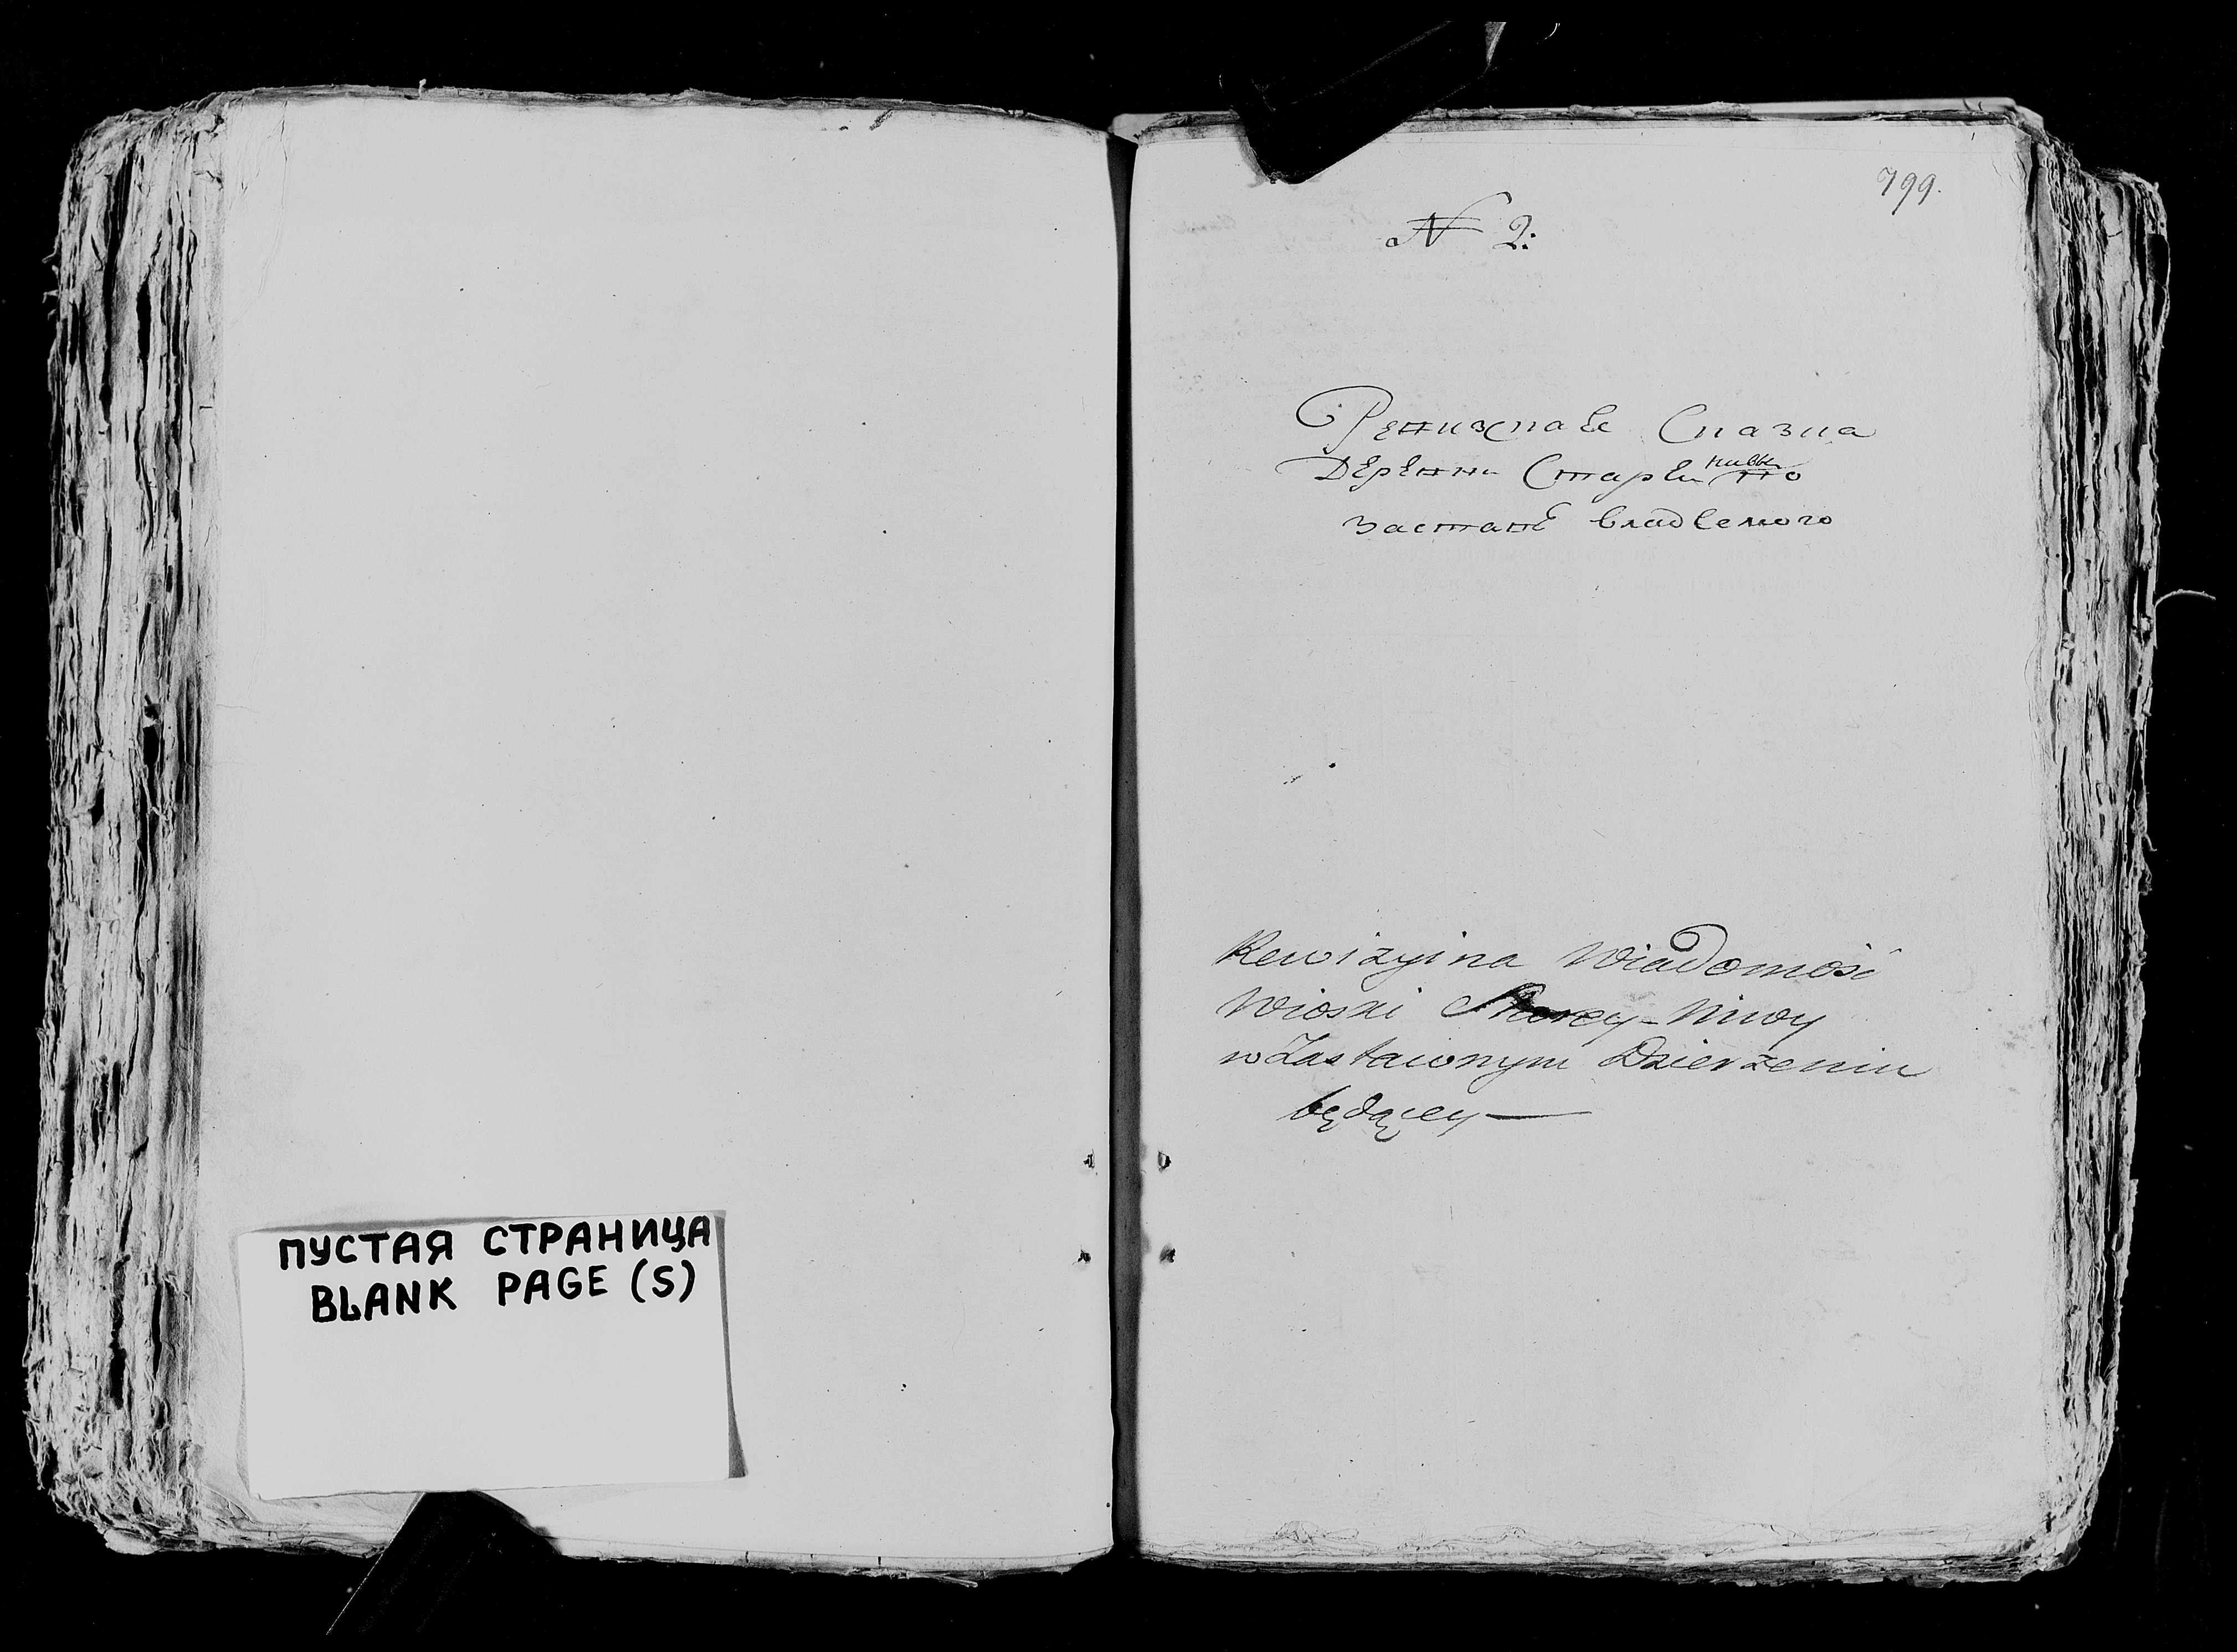 ПУСТАЯ СТРАНИЦА
BLANK PAGE (S)
799.
№ 2:
Ревизская Сказка
Деревни Старей нивы по
заставе владеемого
Rewizyina Wiadomość
Wioski Starey-Niwy
w Zastawnym Dzierżeniu
będącey—